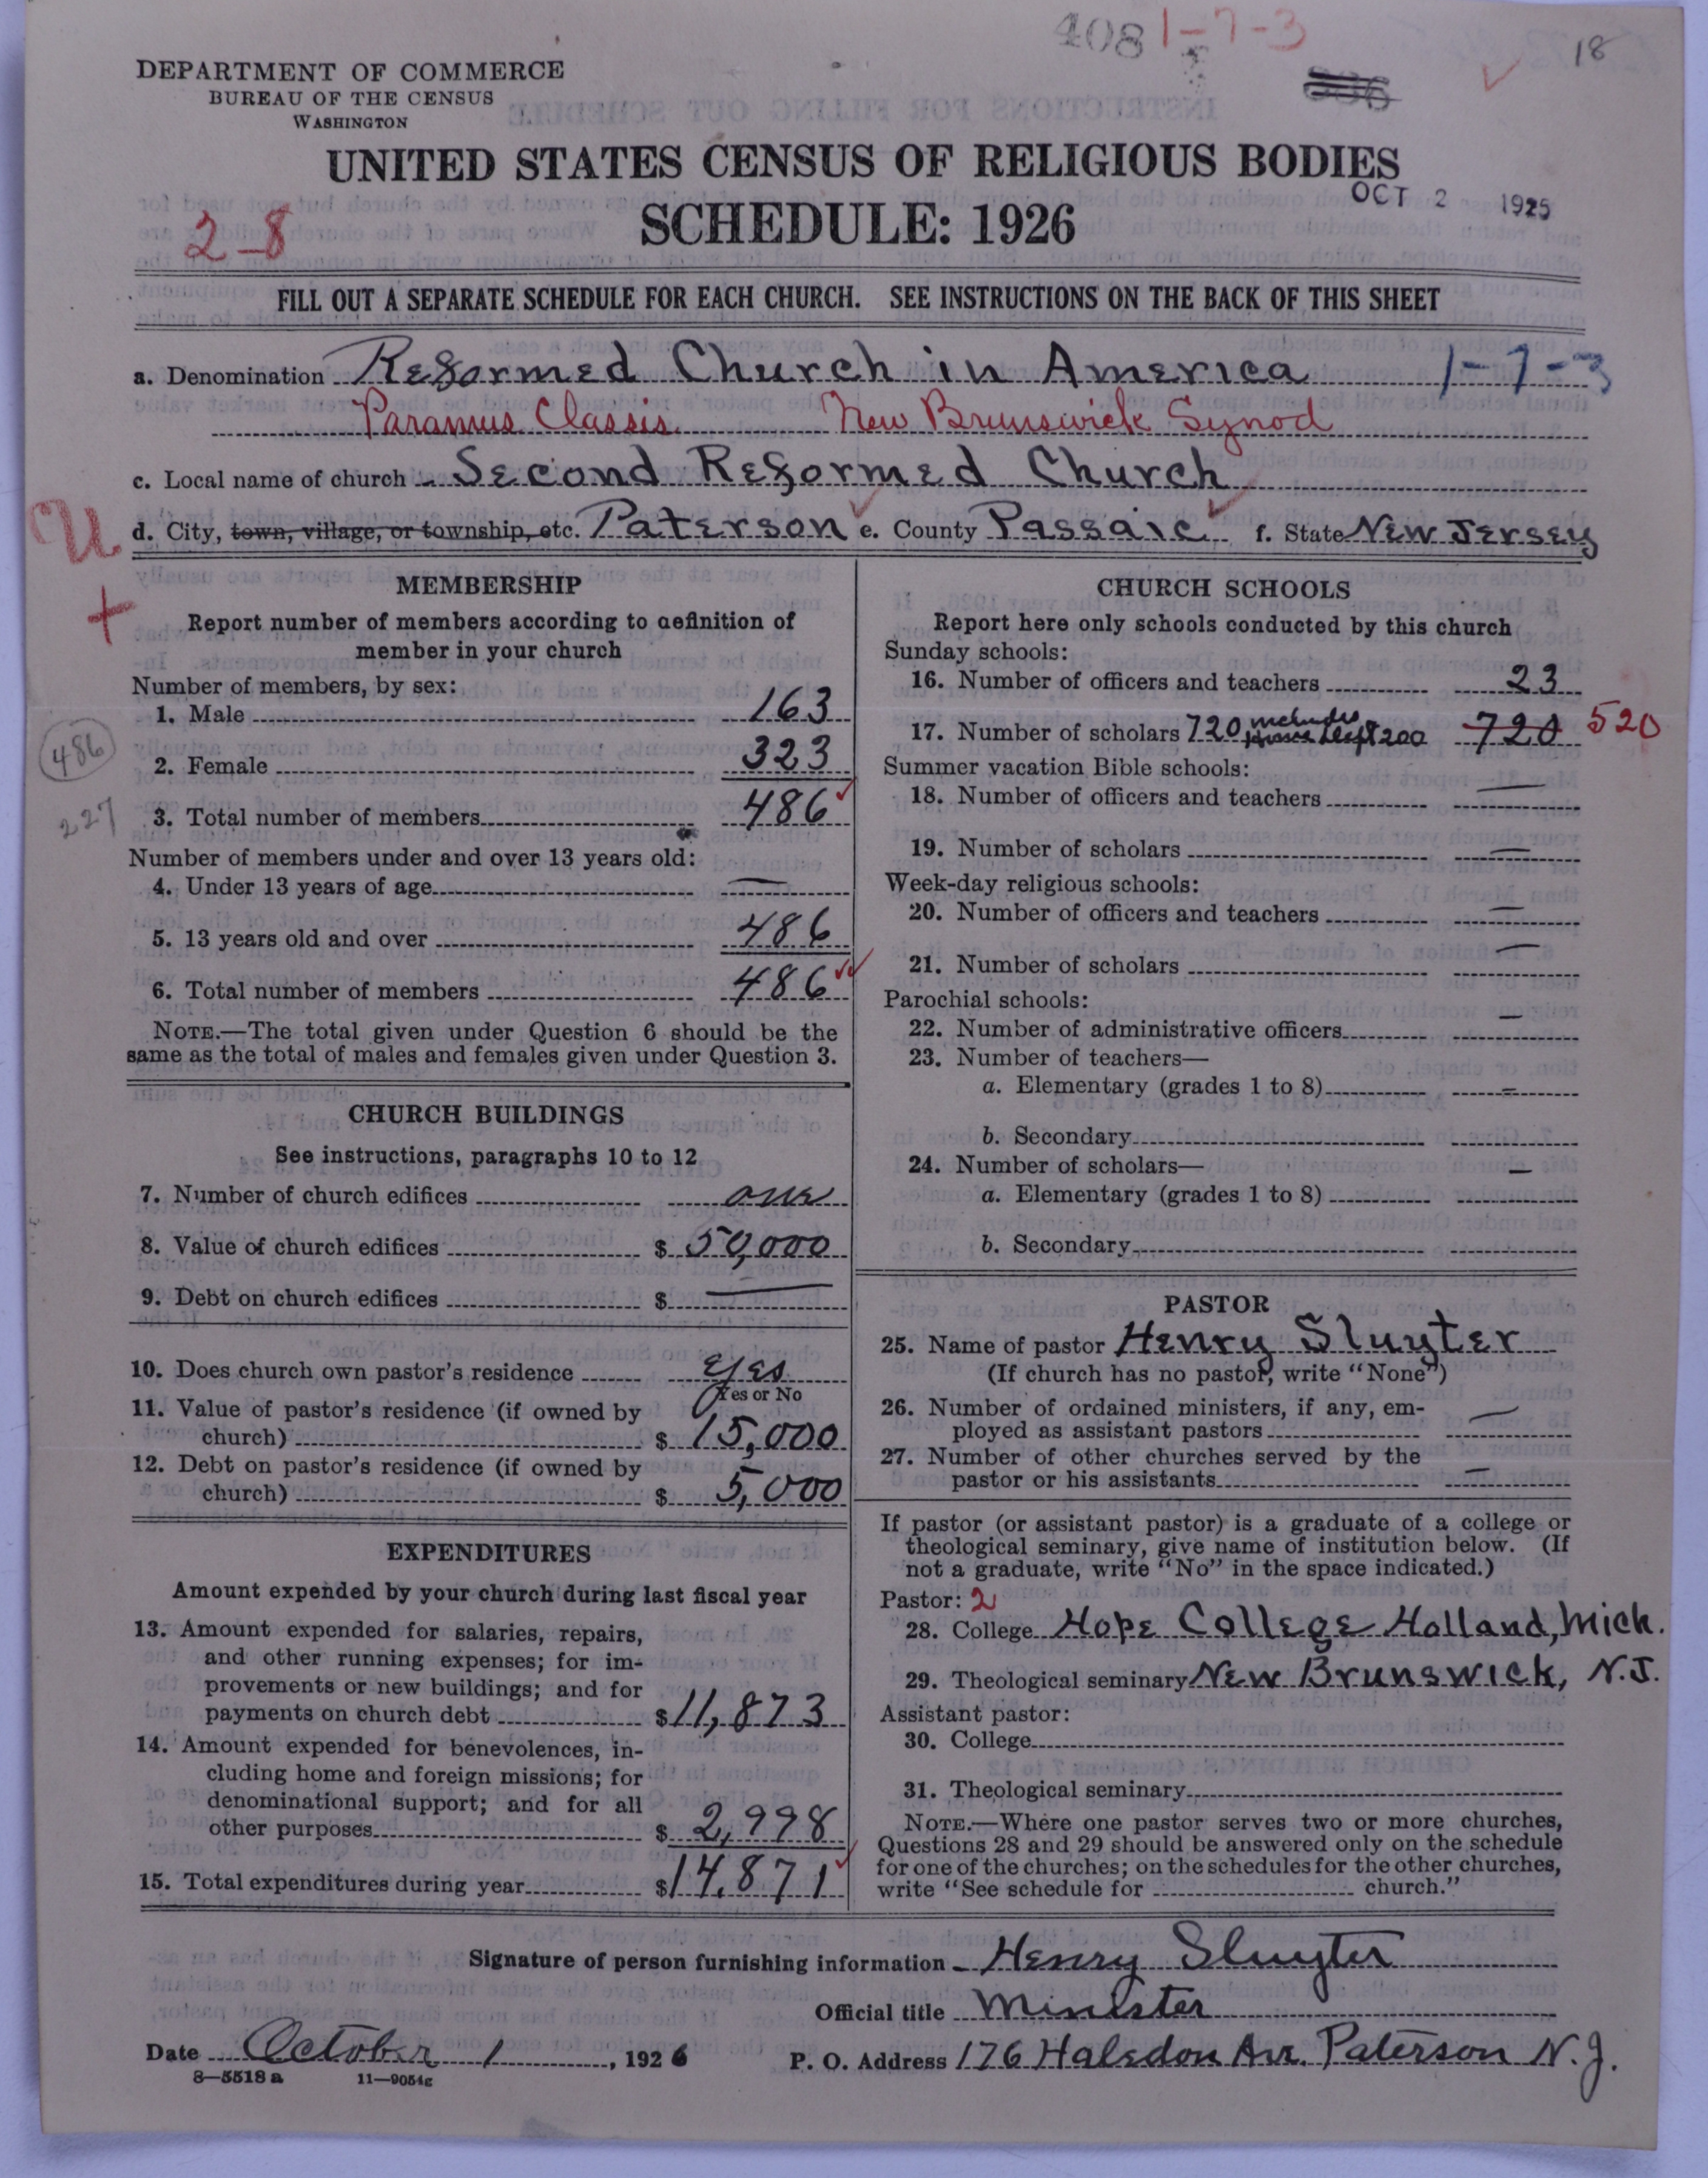 408 1-7-3
18
DEPARTMENT OF COMMERCE
BUREAU OF THE CENSUS
WASHINGTON
UNITED STATES CENSUS OF RELIGIOUS BODIES
OCT 2 1925
SCHEDULE: 1926
2-8
FILL OUT A SEPARATE SCHEDULE FOR EACH CHURCH. SEE INSTRUCTIONS ON THE BACK OF THIS SHEET
a. Denomination Reformed Church in America 1-7-3
Paramus Classis New Brunswick Synod
c. Local name of church Second Reformed Church
U
d. City, town, village, or township, etc. Paterson e. County Passaic f. State New Jersey
+
MEMBERSHIP
Report number of members according to definition of
member in your church
Number of members, by sex:
1. Male 163
486
2. Female 323
227
3. Total number of members 486
Number of members under and over 13 years old:
4. Under 13 years of age —
5. 13 years old and over 486
6. Total number of members 486
NOTE.—The total given under Question 6 should be the
same as the total of males and females given under Question 3.
CHURCH BUILDINGS
See instructions, paragraphs 10 to 12
7. Number of church edifices one
8. Value of church edifices $ 50,000
9. Debt on church edifices $ —
10. Does church own pastor's residence yes
Yes or No
11. Value of pastor's residence (if owned by
church) $ 15,000
12. Debt on pastor's residence (if owned by
church) $ 5,000
EXPENDITURES
Amount expended by your church during last fiscal year
13. Amount expended for salaries, repairs,
and other running expenses; for im-
provements or new buildings; and for
payments on church debt $ 11,873
14. Amount expended for benevolences, in-
cluding home and foreign missions; for
denominational support; and for all
other purposes $ 2,998
15. Total expenditures during year $ 14,871
CHURCH SCHOOLS
Report here only schools conducted by this church
Sunday schools:
16. Number of officers and teachers 23
17. Number of scholars 720 includes Dept 200 720 520
Summer vacation Bible schools:
18. Number of officers and teachers —
19. Number of scholars —
Week-day religious schools:
20. Number of officers and teachers —
21. Number of scholars —
Parochial schools:
22. Number of administrative officers —
23. Number of teachers—
a. Elementary (grades 1 to 8) =
b. Secondary
24. Number of scholars— —
a. Elementary (grades 1 to 8)
b. Secondary
PASTOR
25. Name of pastor Henry Sluyter
(If church has no pastor, write "None")
26. Number of ordained ministers, if any, em-
ployed as assistant pastors —
27. Number of other churches served by the
pastor or his assistants —
If pastor (or assistant pastor) is a graduate of a college or
theological seminary, give name of institution below. (If
not a graduate, write "No" in the space indicated.)
Pastor: 2
28. College Hope College Holland, Mich.
29. Theological seminary New Brunswick, N.J.
Assistant pastor:
30. College
31. Theological seminary
NOTE.—Where one pastor serves two or more churches,
Questions 28 and 29 should be answered only on the schedule
for one of the churches; on the schedules for the other churches,
write "See schedule for church."
Signature of person furnishing information Henry Sluyter
Official title Minister
Date October 1, 1926 P. O. Address 176 Haledon Ave. Paterson N.J.
8—5518 a 11—9054g